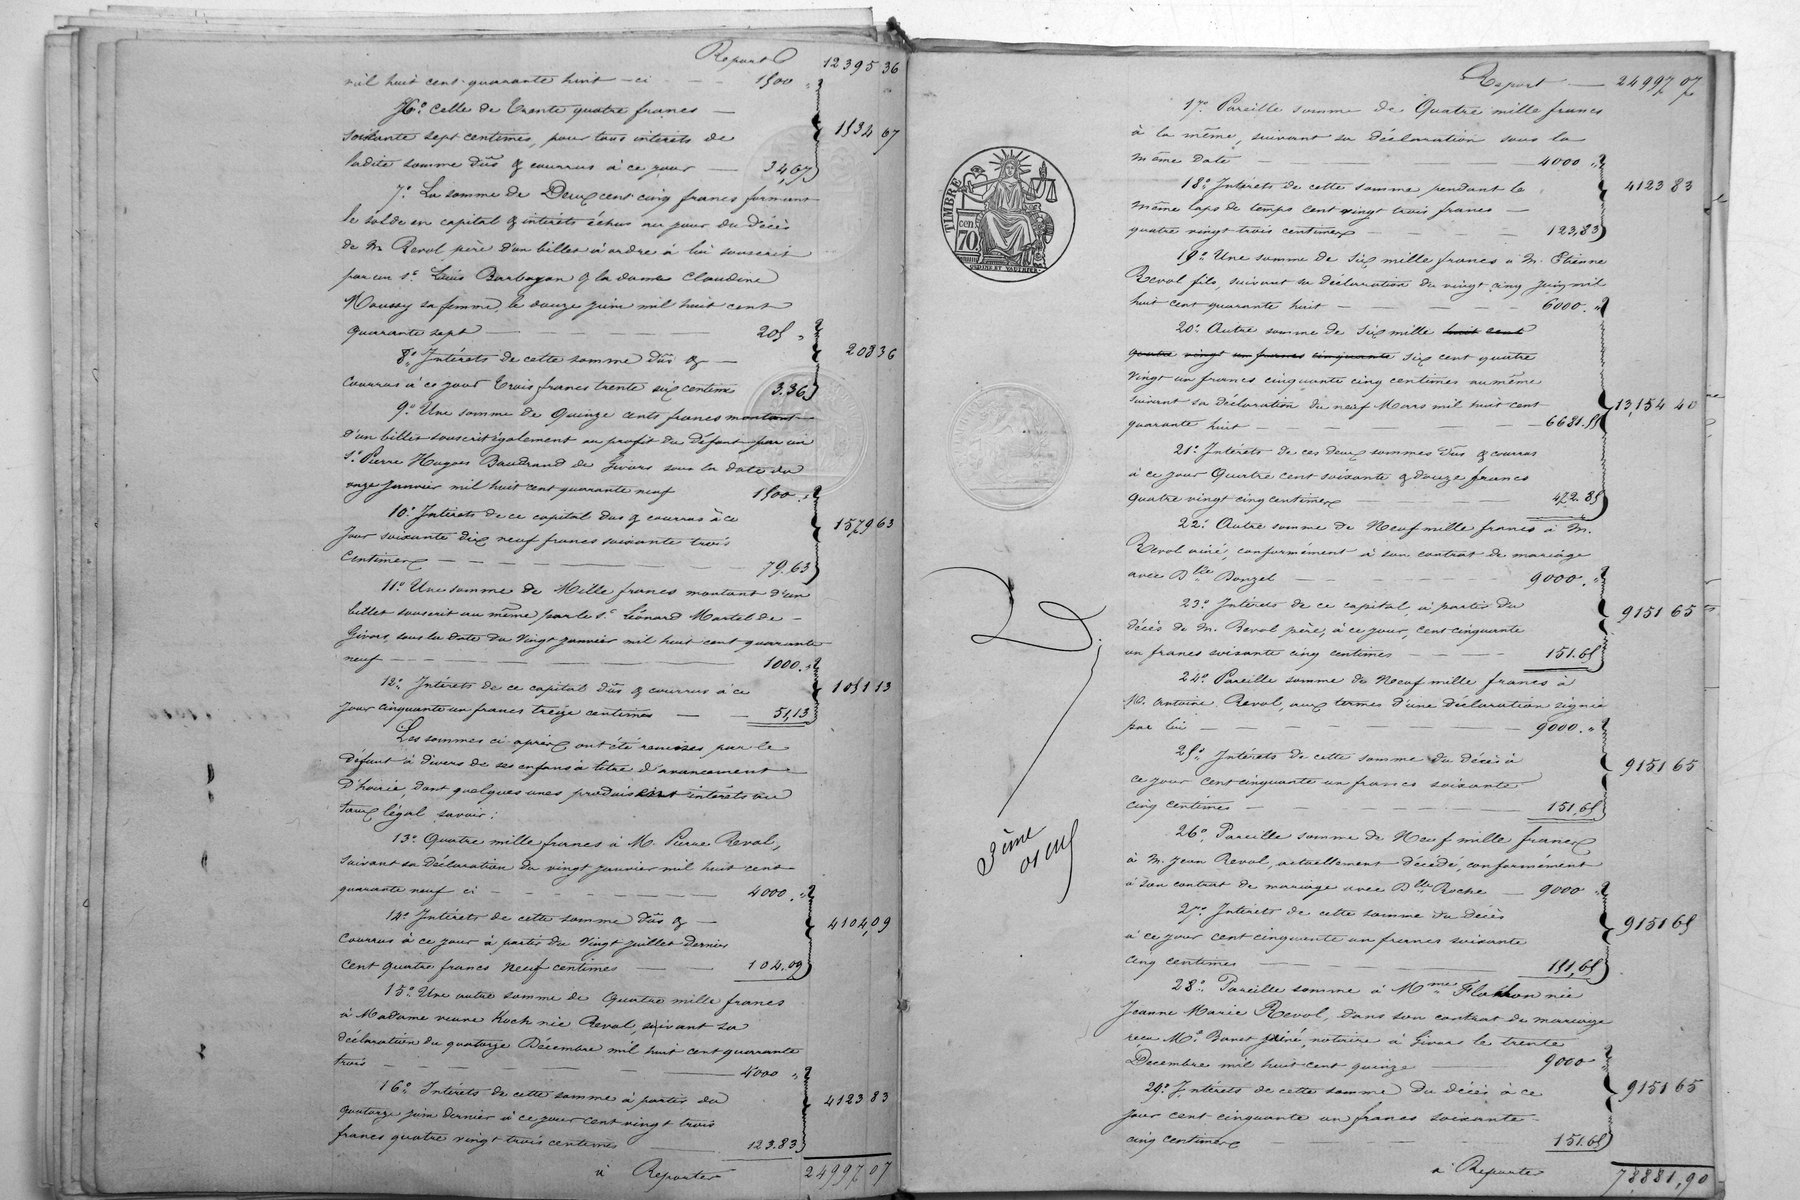 Report 12395 36
mil huit cent quarante huit - ci - - 1500 "
6° Celle de Trente quatre francs
soixante sept centimes, pour tous intérêts de
ladite somme dûs & courrus à ce jour 34,67
1534 67
7° La somme de Deux cent cinq francs formant
le solde en capital & intérêts échus au jour du décès
de M Revol père d'un billet à ordre à lui souscrit
par un Sr Louis Barbagan & la dame Claudine
Moussy sa femme, le douze juin mil huit cent
quarante sept 205 "
8° Intérêts de cette somme dûs &
courrus à ce jour trois francs trente six centimes 3.36
208 36
9° Une somme de Quinze cents francs montant
d'un billet souscrit également au profit du défunt par un
Sr Pierre Hugues Baudrand de Givors sous la date du
onze Janvier mil huit cent quarante neuf 1500 "
10° Intérêts de ce capital dus & courrus à ce
jour soixante dix neuf francs soixante trois
centimes 79.63
1579 63
11° Une somme de Mille francs montant d'un
billet souscrit au même par le Sr Léonard Martel de
Givors, sous la date du vingt janvier mil huit cent quarante
neuf 1000 "
12° Intérêts de ce capital dûs & courrus à ce
jour cinquante un francs treize centimes 51,13
1051 13
Les sommes ci après ont été remises par le
défunt à divers de ses enfans à titre d'avancement
d'hoirie, dont quelques unes produisent intérêts au
taux légal savoir :
13° Quatre mille francs à M. Pierre Revol,
suivant sa déclaration du vingt janvier mil huit cent
quarante neuf ci 4000 "
14° Intérêts de cette somme dûs &
courrus à ce jour à partir du vingt juillet dernier
cent quatre francs neuf centimes 104.09
4104,09
15° Une autre somme de Quatre mille francs
à Madame veuve Koch née Revol, suivant sa
déclaration du quatorze Décembre mil huit cent quarante
trois 4000 "
16° Intérêts de cette somme à partir du
quatorze juin dernier à ce jour cent vingt trois
francs quatre vingt trois centimes 123.83
4123 83
à Reporter 24997 07
Report 24997 07
17° Pareille somme de Quatre mille francs
à la même, suivant sa déclaration sous la
même date 4000 "
18° Intérêts de cette somme pendant le
même laps de temps cent vingt trois francs
quatre vingt trois centimes 123,83
4123 83
19° Une somme de six mille francs à M. Etienne
Revol fils, suivant sa déclaration du vingt cinq juin mil
huit cent quarante huit 6000 "
20° Autre somme de six mille huit cent
quatre vingt un francs cinquante six cent quatre
vingt un francs cinquante cinq centimes au même
suivant sa déclaration du neuf Mars mil huit cent
quarante huit 6681.55
21° Intérêts de ces deux sommes dûs & courrus
à ce jour Quatre cent soixante & douze francs
quatre vingt cinq centimes 472.85
13,154 40
22° Autre somme de Neuf mille francs à M.
Revol ainé, conformément à son contrat de mariage
avec Dlle Bonzel 9000 "
23° Intérêts de ce capital, à partir du
décès de M. Revol père, à ce jour, cent cinquante
un francs soixante cinq centimes 151.65
9151 65
24° Pareille somme de Neuf mille francs à
M. Antoine Revol, aux termes d'une déclaration signée
par lui 9000 "
25° Intérêts de cette somme du décès à
ce jour cent cinquante un francs soixante
cinq centimes 151.65
9151 65
26° Pareille somme de Neuf mille francs
à M. Jean Revol, actuellement décédé, conformément
à son contrat de mariage avec Dlle Roche 9000 "
27° Intérêts de cette somme du décès
à ce jour cent cinquante un francs soixante
cinq centimes 151,65
9151 65
28° Pareille somme à Mme Flachon née
Jeanne Marie Revol, dans son contrat de mariage
reçu Me Bonet ainé, notaire à Givors le trente
Decembre mil huit cent quinze 9000 "
29° Intérêts de cette somme du décès à ce
jour cent cinquante un francs soixante
cinq centimes 151.65
9151 65
à Reporter 78881,90
TIMBRE
cen
70.
3ème